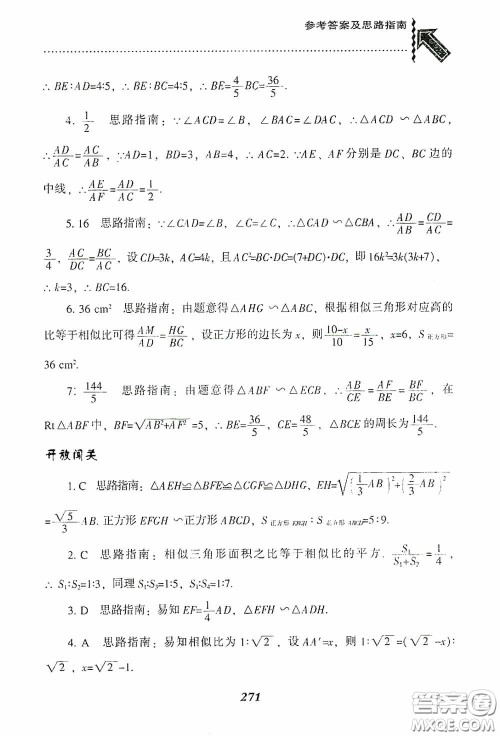 参考答案及思路指南
∴BE∶AD=4∶5,∴BE∶BC=4∶5,∴BE=4/5 BC=36/5.
4. 1/2 思路指南:∵∠ACD=∠B,∠BAC=∠DAC,∴△ACD∽△ABC,
∴AD/AC=AC/AB,∵AD=1,BD=3,AB=4,∴AC=2.∵AE、AF分别是DC、BC边的
中线,∴AE/AF=AD/AC=1/2.
5. 16 思路指南:∵∠CAD=∠B,∠C=∠C,∴△CAD∽△CBA,∴AD/AB=CD/AC=
3/4,AC/DC=BC/AC,设CD=3k,AC=4k,且AC²=BC·DC=(7+DC)·DC,即16k²=3k(3k+7),
∴k=3,∴BC=16.
6. 36 cm² 思路指南:由题意得△AHG∽△ABC,根据相似三角形对应高的
比等于相似比可得AM/AD=HG/BC,设正方形的边长为x,则(10-x)/10=x/15,x=6,S正方形=
36 cm².
7. 144/5 思路指南:由题意得△ABF∽△ECB,∴AB/CE=AF/BE=BF/BC,在
Rt△ABF中,BF=√(AB²+AF²)=5,∴BE=36/5,CE=48/5,△BCE的周长为144/5.
开放闯关
1. C 思路指南:△AEH≌△BFE≌△CGF≌△DHG,EH=√((1/3 AB)²+(2/3 AB)²)
=√5/3 AB.正方形EFGH∽正方形ABCD,S正方形EFGH∶S正方形ABCD=5∶9.
2. C 思路指南:相似三角形面积之比等于相似比的平方.S₁/(S₁+S₂)=1/4,
∴S₁∶S₂=1∶3,同理S₁∶S₄=1∶7.
3. D 思路指南:易知EF=1/4 AD,△EFH∽△ADH.
4. A 思路指南:易知相似比为1∶√2,设AA′=x,则1∶√2=(√2-x)∶
√2,x=√2-1.
271